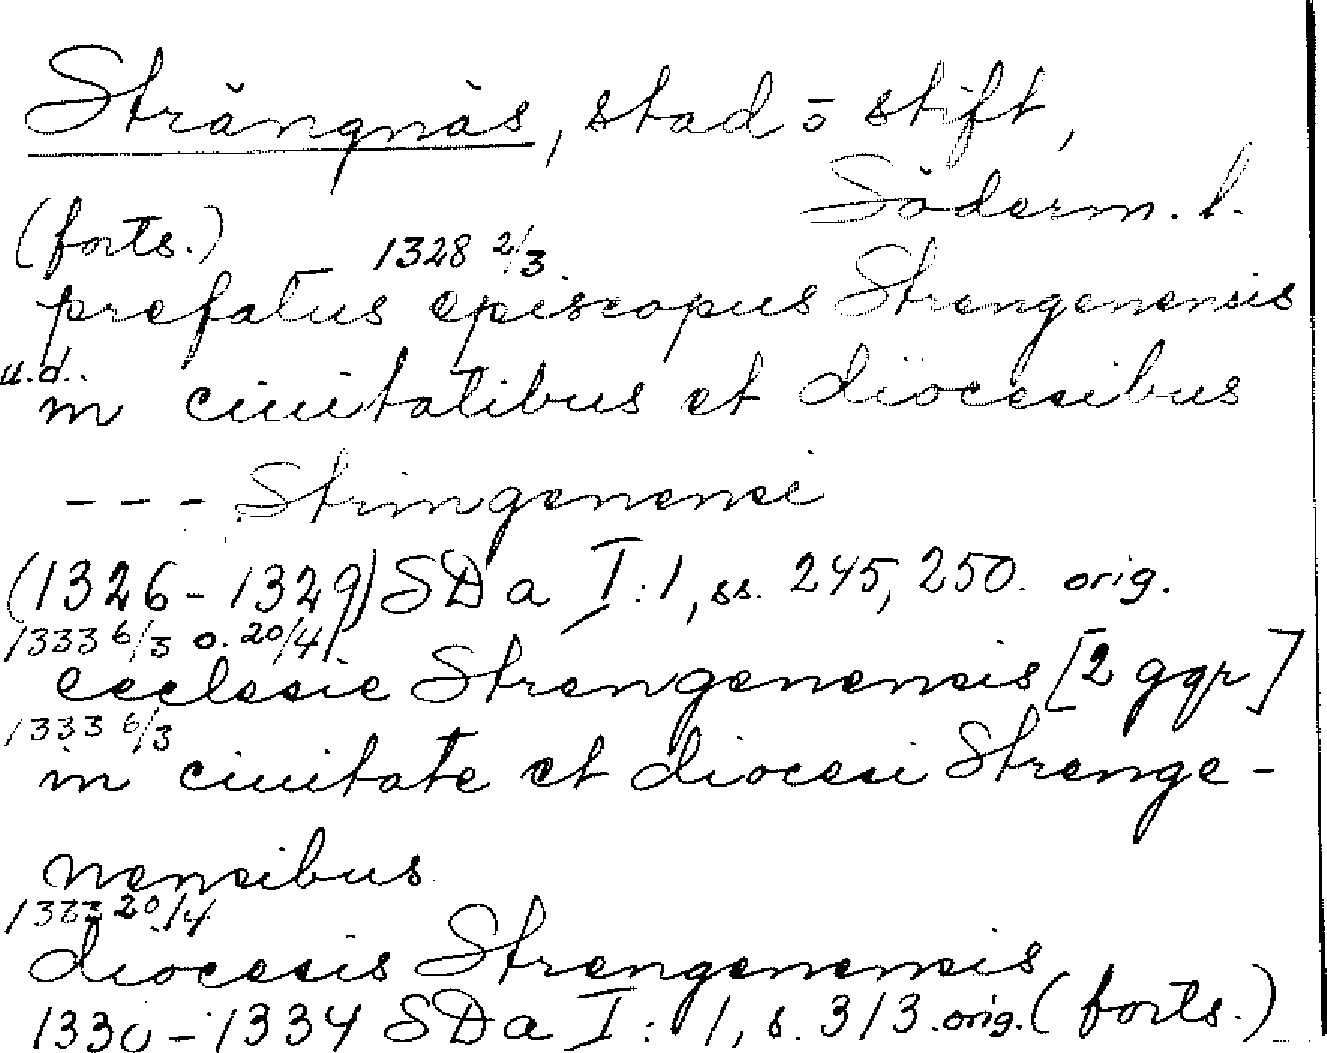 Strängnäs, stad o stift,
Söderm. l.
(forts.)
1328 2/3.
prefatus episcopus Strengenensis
u.d.
in ciuitatibus et diocesibus
--- Stringenensi
(1326-1329) SDa I:1, ss. 245, 250. orig.
1333 6/3 o. 20/4
ecclesie Strengenensis [2 ggr]
1333 6/3
in ciuitate et diocesi Strenge-
nensibus
1333 20/4
diocesis Strengenensis
1330-1334 SDa I:1, s. 313. orig. (forts.)